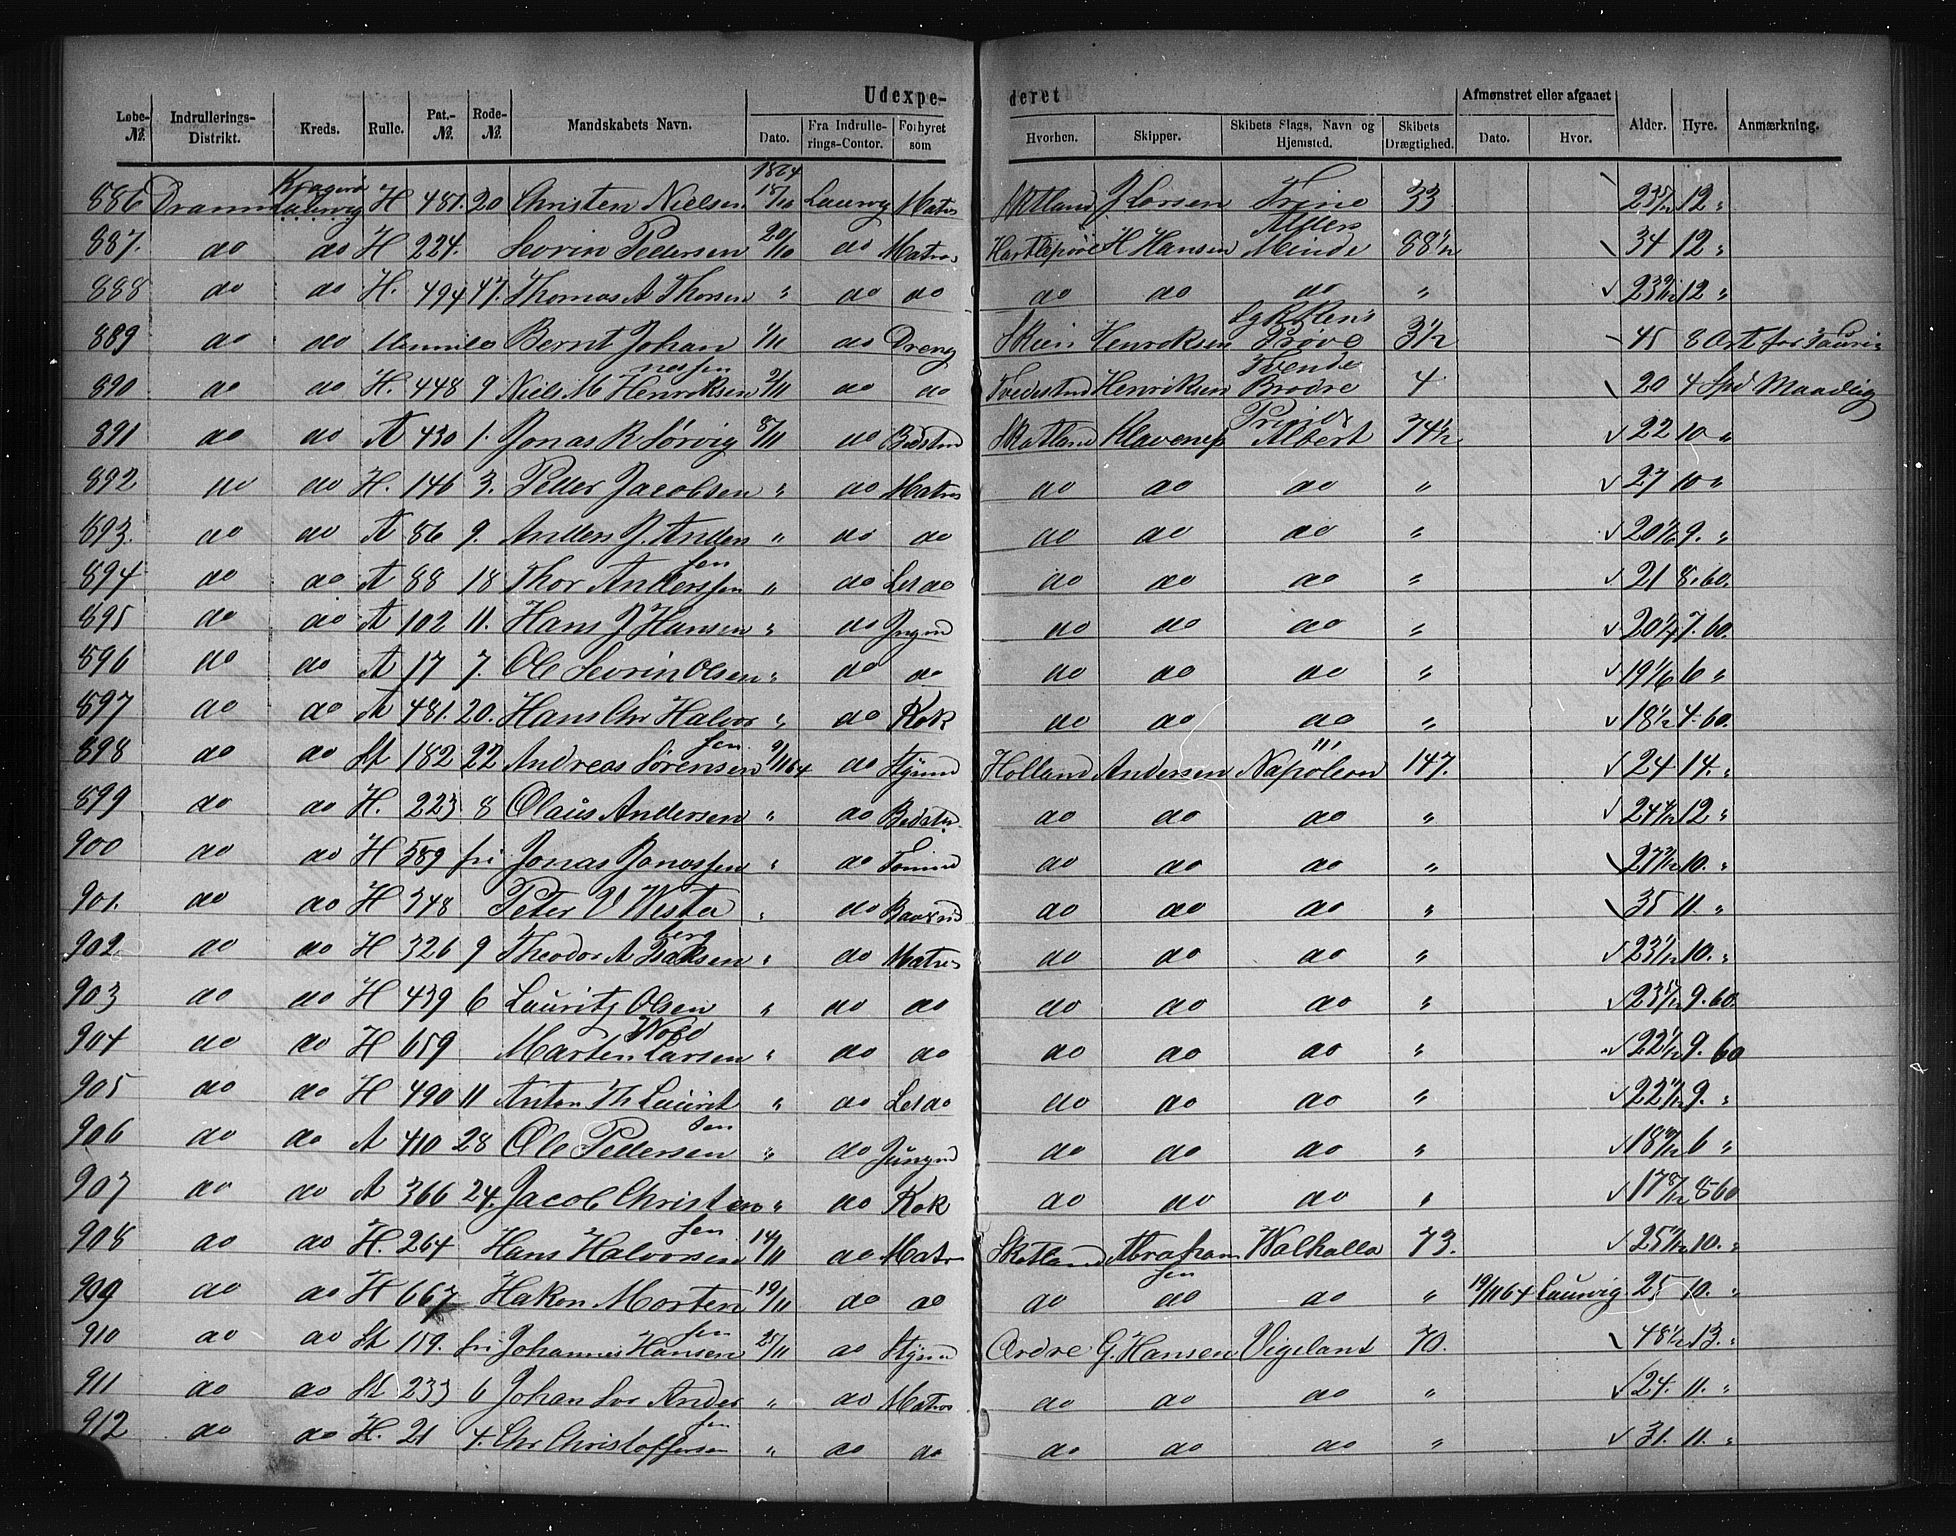 Udexpederet
Løbe-№ Indrullerings-Distrikt. Kreds. Rulle. Pat.-№ Rode-№ Mandskabets Navn. Dato. Fra Indrullerings-Contor. Forhyret som Hvorhen. Skipper. Skibets Slags, Navn og Hjemsted. Skibets Drægtighed. Afmønstret eller afgaaet Dato. Hvor. Alder. Hyre. Anmærkning.
1864
886 Dramm Kragerø Laurvig H 481. 20 Christen Nielsen 15/10 Laurvig Matros Skotland J Larsen Trine 33 23 5/12 12 "
887. do do H 224. Sevrin Pedersen 20/10 do Matros Hartlepool H Hansen Alliers Minde 88 1/2 34 12 "
888 do do H. 494 47. Thomas A Thorsen " do do do do do " 23 9/12 12 "
889 do do Bernt Johannessen 1/11 do Dreng Skien Henriksen Prøve 3 1/2 45 8 Ort for
890 do do H. 448 9 Niels M Henriksen 2/11 do do Tvedestrand Henriksen Tvende Brødre 4 20 4 Spd Maadlig
891 do do A 430 1. Jonas R Sørvig 8/11 do Bedstmd Skotland Klavenes Prinds Albert 74 1/2 22 10 "
892 do do H. 146 3. Peder Jacobsen " do Matros do do do " 27 10 "
893. do do A 86 9. Anders J. Andersen " do do do do do " 20 9. "
894 do do A 88 18 Thor Anderssen " do Letdo do do do " 21 8. 60.
895 do do A 102 11. Hans J Hansen " do Jngmd do do do " 20 7. 60.
896 do do A 17 7. Ole Sevrin Olsen " do do do do do " 19 1/6 6 "
897 do do A 481. 20. Hans Chr Halvorsen " do Kok do do do " 18 1/2 4. 60.
898 do do St 182 22 Andreas Sørensen 9/11 64 do Stÿrmd Holland Andersen Napoleon III 147. 24 14. "
899 do do H. 223 8 Olaus Andersen " do Bedstm do do do " 24 12 "
900 do do H 589 fri Jonas Jonassen " do Tømmd do do do " 27 10. "
901. do do H 348 Peter V Westerberg " do Baadsmd do do do " 35 11. "
902 do do H 326 9 Theodor A Isaksen " do Matros do do do " 23 1/12 10. "
903 do do H 439 6 Lauritz Olsen " do do do do do " 23 5/12 9. 60.
904 do do H 659 Marten Larsen Wold " do do do do do " 22 1/12 9. 60
905 do do H 490 11 Anton Th Lauritsen " do Letdo do do do " 22 9. "
906 do do A 410 28 Ole Pedersen " do Jungmd do do do " 18 6 "
907 do do A 366 24. Jacob Christensen " do Kok do do do " 17 8/12 8 60
908 do do H. 264 Hans Halvorsen 14/11 do Matr Skotland Abrahamsen Walhalla 73. 25 10. "
909 do do H 667 Hakon Mortensen 19/11 do do do do do " 19/11 64 Laurvig 25 10. "
910 do do St 159. fri Johannes Hansen 25/11 do Stÿrmd Ordre G. Hansen Vigeland 70. 48 1/2 13. "
911 do do St 233 6 Johan Andersen " do Matros do do do " 24. 11. "
912 do do H. 21 4. Chr Christoffersen " do do do do do " 31. 11. "